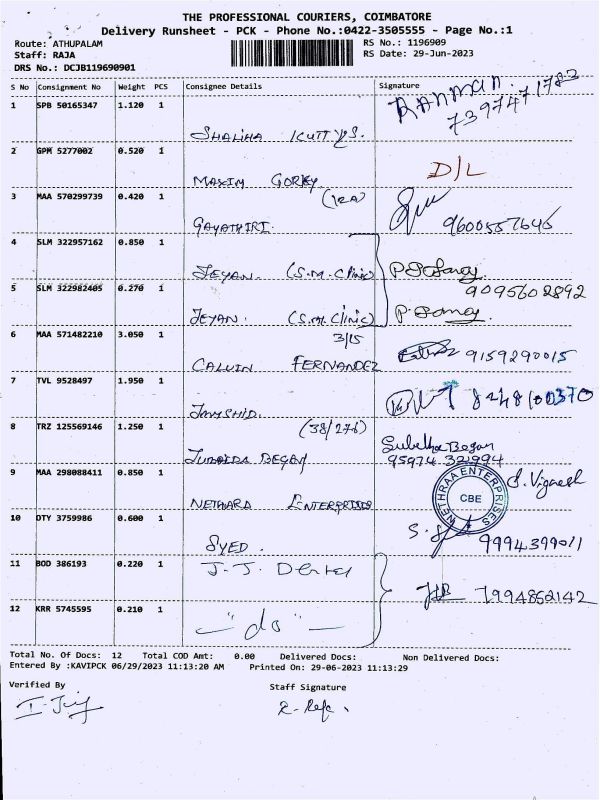 THE PROFESSIONAL COURIERS, COIMBATORE
Delivery Runsheet - PCK - Phone No.:0422-3505555 - Page No.:1
Route: ATHUPALAM RS No.: 1196909
Staff: RAJA RS Date: 29-Jun-2023
DRS No.: DCJB119690901
S No Consignment No Weight PCS Consignee Details Signature
RAHMAN. 7397471783
1 SPB 50165347 1.120 1
SHALIHA KUTTY S.
2 GPM 5277002 0.520 1
MAXIM GORKY D/L
3 MAA 570299739 0.420 1 (KRA)
GAYATHIRI. 9600557646
4 SLM 322957162 0.850 1
JEYAN. (S.M. Clinic)
5 SLM 322982405 0.270 1 9095602892
JEYAN. (S.M. Clinic)
6 MAA 571482210 3.050 1 3/15
CALVIN FERNANDEZ 9159290015
7 TVL 9528497 1.950 1
JAMSHID. 8248100370
8 TRZ 125569146 1.250 1 (38/276)
JUBAIDA BEGAM 95974 321994
9 MAA 298088411 0.850 1
NETHRAA ENTERPRISES CBE S. Vignesh
NETHRAA ENTERPRISES
10 DTY 3759986 0.600 1
SYED. 9994399011
11 BOD 386193 0.220 1 J.J. Dental
7994862142
12 KRR 5745595 0.210 1
—"do"—
Total No. Of Docs: 12 Total COD Amt: 0.00 Delivered Docs: Non Delivered Docs:
Entered By :KAVIPCK 06/29/2023 11:13:20 AM Printed On: 29-06-2023 11:13:29
Verified By Staff Signature